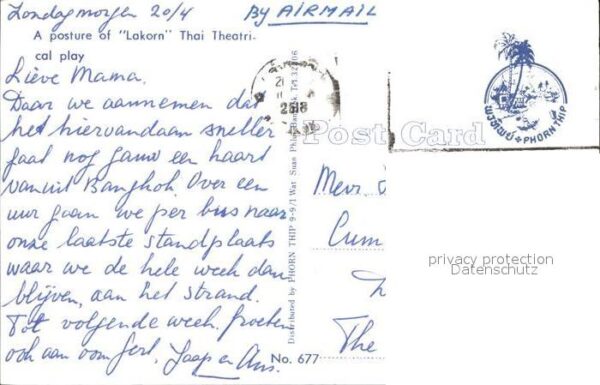 Zondagmorgen 20/4
BY AIRMAIL
A posture of "Lakorn" Thai Theatri-
cal play
Lieve Mama,
Daar we aannemen dat
het hiervandaan sneller
gaat nog gauw een kaart
vanuit Bangkok. Over een
uur gaan we per bus naar
onze laatste standplaats
waar we de hele week dan
blijven, aan het strand.
Tot volgende week. Groeten
ook aan oom Gert, Jaap en Ans.
Distributed by PHORN THIP 9-9/1 Wat Suan
No. 677
Post Card
พรทิพย์ PHORN THIP
Mevr.
The
privacy protection
Datenschutz